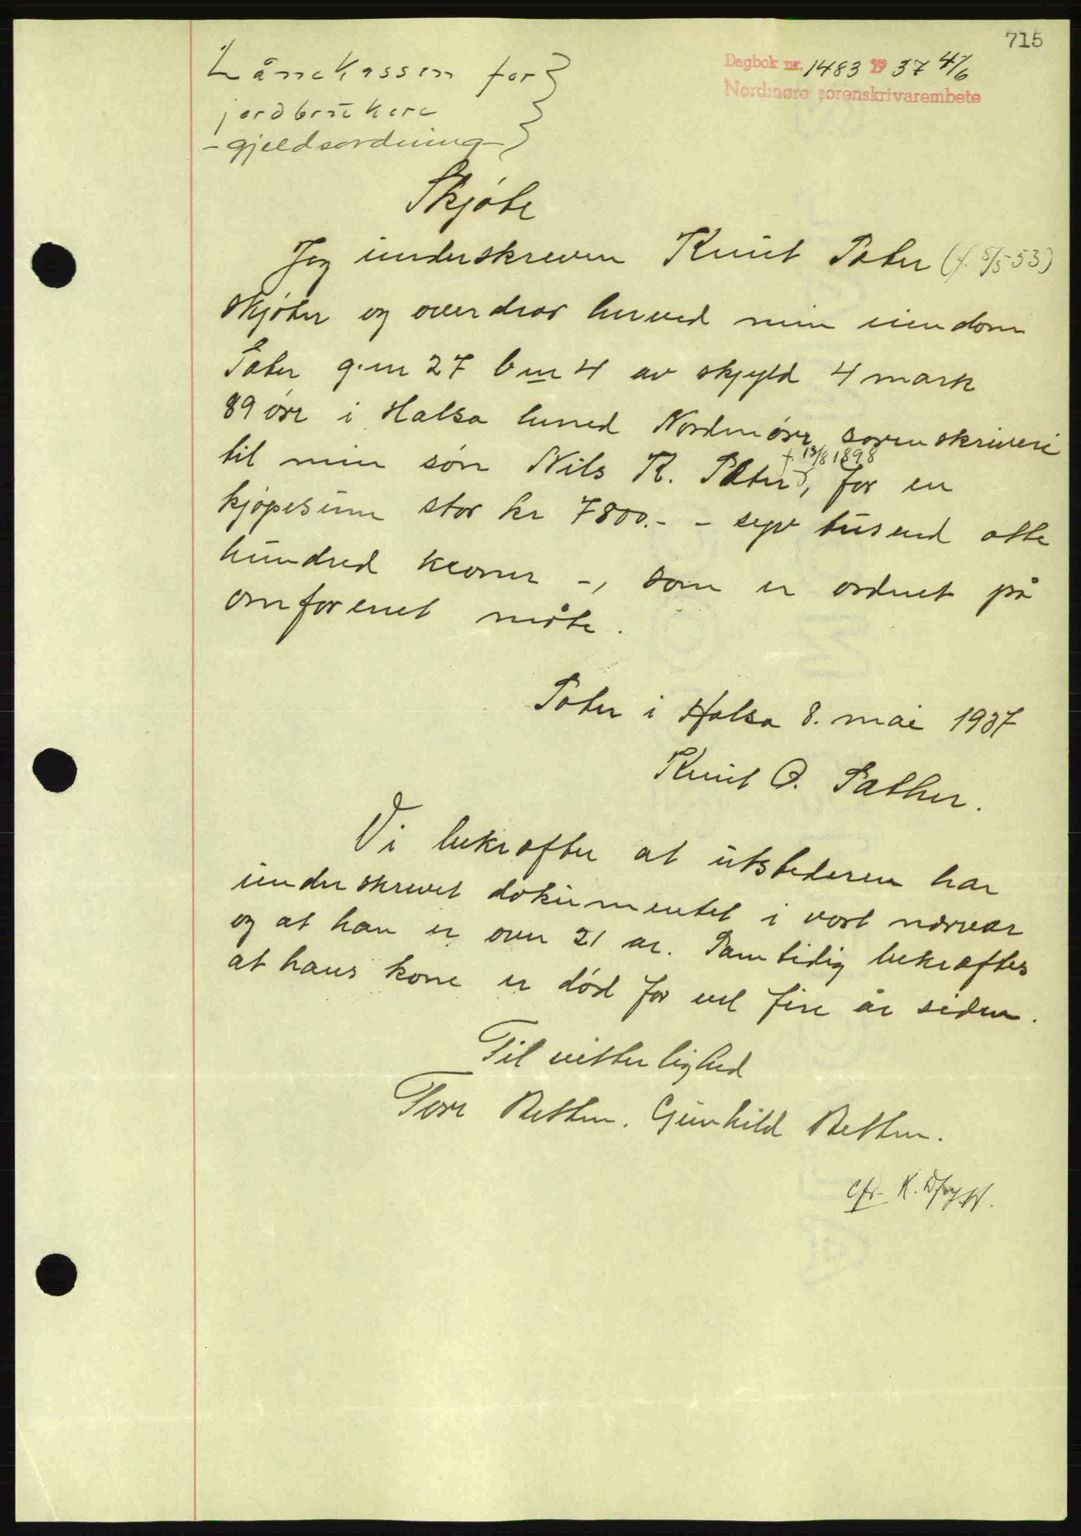 715
Lånekassen for
jordbrukere
- gjeldsordning -
Dagbok nr. 1483 1937 4/6
Nordmøre sorenskrivarembete
Skjøte
Jeg underskreven Knut Sæter (f. 5/5 53)
skjøter og overdrar herved min eiendom
Sæter g.nr 27 b nr 4 av skyld 4 mark
89 øre i Halsa herred Nordmøre sorenskriveri
til min søn Nils K. Sæter, f 13/8 1898 for en
kjøpesum stor kr 7800.- - syv tusend otte
hundred kroner -, som er ordnet på
omforenet måte.
Sæter i Halsa 8. mai 1937
Knut O. Sæther.
Vi bekræfter at utstederen har
underskrevet dokumentet i vort nærvær
og at han er over 21 ar. Samtidig bekræftes
at hans kone er død for vel fire år siden.
Til vitterlighed
Tore Betten. Gunhild Betten.
cfr. K.